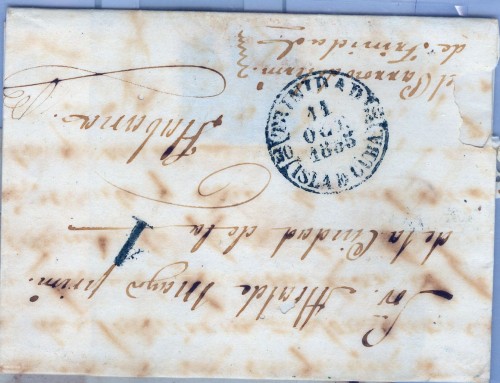 Sor. Alcalde mayor prim.
de la Ciudad de la
1
Habana
TRINIDAD
11
OCT.
1855
ISLA DE CUBA
El Parroco
de Trinidad